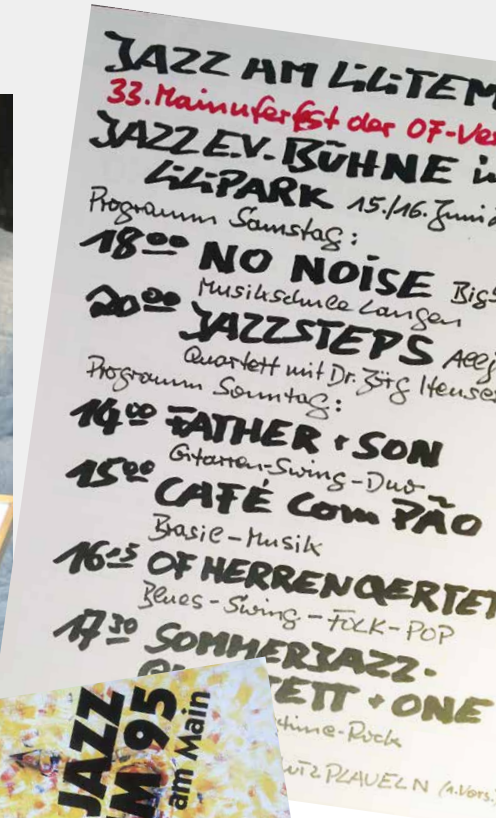 JAZZ AM LiLiTEM
33. Mainuferfest der OF-Ver
JAZZ E.V. BÜHNE i
LiLiPARK 15./16. Juni 2
Programm Samstag:
18⁰⁰ NO NOiSE Big-
Musikschule Langen
20⁰⁰ JAZZSTEPS
Quartett mit Dr. Jörg Heuse
Programm Sonntag:
14⁰⁰ FATHER + SON
Gitarren-Swing-Duo
15⁰⁰ CAFÉ Com PÃO
Brasil-Musik
16¹⁵ OF HERRENQERTET
Blues-Swing-FOLK-POP
17³⁰ SOMMERJAZZ-
ETT + ONE
time-Rock
PLAUELN (1. Vors.)
JAZZ
M 95
am Main